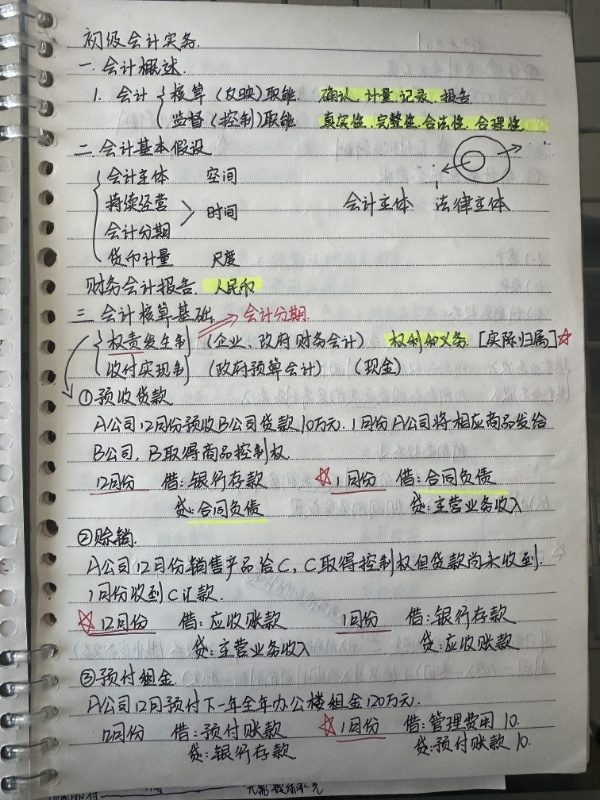 初级会计实务.
一. 会计概述.
1. 会计 { 核算 (反映) 职能 确认. 计量. 记录. 报告
监督 (控制) 职能 真实性. 完整性. 合法性. 合理性.
二. 会计基本假设
会计主体 空间
持续经营
> 时间
会计分期
会计主体 法律主体
货币计量 尺度
财务会计报告. 人民币
三. 会计核算基础. 会计分期.
权责发生制 (企业、政府财务会计) 权利和义务 [实际归属]☆
收付实现制 (政府预算会计) (现金)
①预收货款
A公司12月份预收B公司货款10万元. 1月份A公司将相应商品发给
B公司, B取得商品控制权.
12月份 借: 银行存款 ☆1月份 借: 合同负债
贷: 合同负债 贷: 主营业务收入
②赊销.
A公司12月份销售产品给C, C取得控制权但货款尚未收到.
1月份收到C汇款.
☆12月份 借: 应收账款 1月份 借: 银行存款
贷: 主营业务收入 贷: 应收账款
③预付租金
A公司12月预付下一年全年办公楼租金120万元.
12月份 借: 预付账款 ☆1月份 借: 管理费用 10.
贷: 银行存款 贷: 预付账款 10.